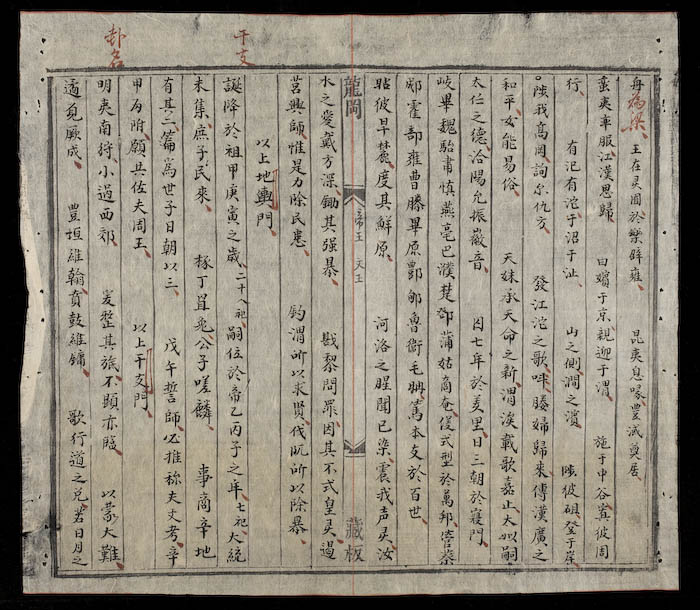 舟為梁 王在灵囿於樂辟雍 昆夷息喙豊減奠居
蛮夷率服江漢思歸 曰嬪于京親迎于渭 施于中谷寘彼周
行 有汜有沱于沼于沚 山之側澗之濱 陟彼砠登于岸
陟我高罔詢尔仇方 發江沱之歌呼媵婦歸來傳漢廣之
和平女能易俗 天妹承天命之新渭涘載歌嘉止大姒嗣
太任之德洽陽允振徽音 囚七年於羑里日三朝於寢門
岐畢魏駘肅慎燕亳巴濮楚鄧蒲姑商奄優式型於萬邦管蔡
郕霍郜雍曹滕畢原酆郇魯衛毛聃篤本支於百世
瞻彼旱麓度其鮮原 河洛之腥聞已染震我声灵汝
龍岡 帝王 文王 藏板
水之愛戴方深鋤其强暴 戡黎問罪因其不式皇灵遏
莒興師惟是力除民患 釣渭所以求賢伐阮所以除暴
以上地輿門
干支
誕降於祖甲庚寅之歳二十八祀嗣位於帝乙丙子之年七祀大統
未集庶子民來 椓丁罝兔公子嗟麟 事商辛地
有其二篇為世子日朝以三 戊午誓師必推称夫文考辛
甲為附願其佐夫周王 以上干支門
卦名
明夷南狩小過西郊 爰整其旅不顕亦臨 以蒙大難
遘 厥成 豊垣維翰賁鼓維鏞 歌行道之兌若日月之